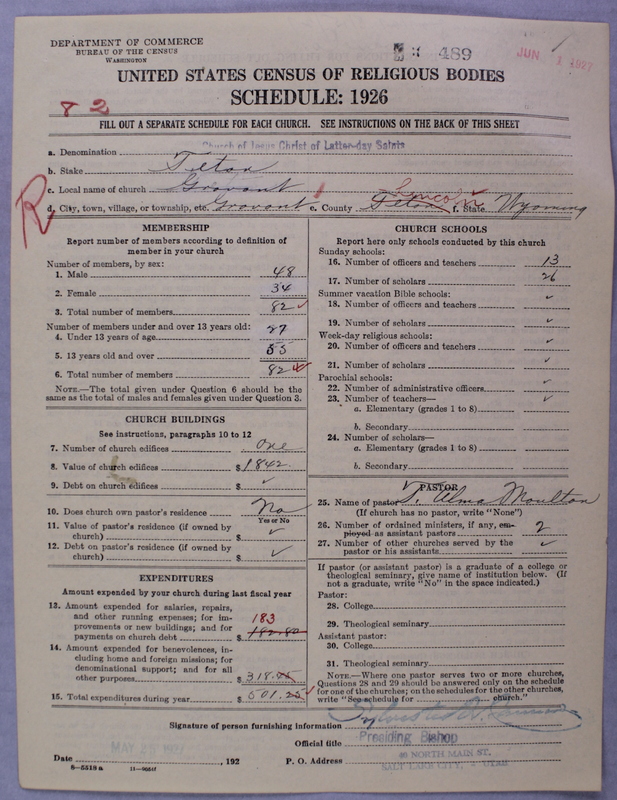 DEPARTMENT OF COMMERCE
BUREAU OF THE CENSUS
WASHINGTON
489
JUN 1 1927
UNITED STATES CENSUS OF RELIGIOUS BODIES
SCHEDULE: 1926
82
FILL OUT A SEPARATE SCHEDULE FOR EACH CHURCH. SEE INSTRUCTIONS ON THE BACK OF THIS SHEET
a. Denomination Church of Jesus Christ of Latter-day Saints
b. Stake Teton
c. Local name of church Grovont
d. City, town, village, or township, etc. Grovont e. County Teton Lincoln f. State Wyoming
R
MEMBERSHIP
Report number of members according to definition of
member in your church
Number of members, by sex:
1. Male 48
2. Female 34
3. Total number of members 82
Number of members under and over 13 years old:
4. Under 13 years of age 27
5. 13 years old and over 55
6. Total number of members 82
NOTE.—The total given under Question 6 should be the
same as the total of males and females given under Question 3.
CHURCH BUILDINGS
See instructions, paragraphs 10 to 12
7. Number of church edifices One
8. Value of church edifices $ 1842
9. Debt on church edifices $ ✓
10. Does church own pastor's residence No
Yes or No
11. Value of pastor's residence (if owned by
church) $ ✓
12. Debt on pastor's residence (if owned by
church) $ ✓
EXPENDITURES
Amount expended by your church during last fiscal year
13. Amount expended for salaries, repairs,
and other running expenses; for im-
provements or new buildings; and for
payments on church debt $ 183 182.80
14. Amount expended for benevolences, in-
cluding home and foreign missions; for
denominational support; and for all
other purposes $ 318.
15. Total expenditures during year $ 501.25
CHURCH SCHOOLS
Report here only schools conducted by this church
Sunday schools:
16. Number of officers and teachers 13
17. Number of scholars 26
Summer vacation Bible schools:
18. Number of officers and teachers ✓
19. Number of scholars ✓
Week-day religious schools:
20. Number of officers and teachers ✓
21. Number of scholars ✓
Parochial schools:
22. Number of administrative officers ✓
23. Number of teachers— ✓
a. Elementary (grades 1 to 8)
b. Secondary
24. Number of scholars—
a. Elementary (grades 1 to 8)
b. Secondary
PASTOR
25. Name of pastor T. Alma Moulton
(If church has no pastor, write "None")
26. Number of ordained ministers, if any, em-
ployed as assistant pastors 2
27. Number of other churches served by the
pastor or his assistants ✓
If pastor (or assistant pastor) is a graduate of a college or
theological seminary, give name of institution below. (If
not a graduate, write "No" in the space indicated.)
Pastor:
28. College
29. Theological seminary
Assistant pastor:
30. College
31. Theological seminary
NOTE.—Where one pastor serves two or more churches,
Questions 28 and 29 should be answered only on the schedule
for one of the churches; on the schedules for the other churches,
write "See schedule for church."
Signature of person furnishing information Sylvester Q. Cannon
Official title Presiding Bishop
MAY 25 1927
Date , 192 P. O. Address 40 NORTH MAIN ST.
SALT LAKE CITY, UTAH
8-5518 a